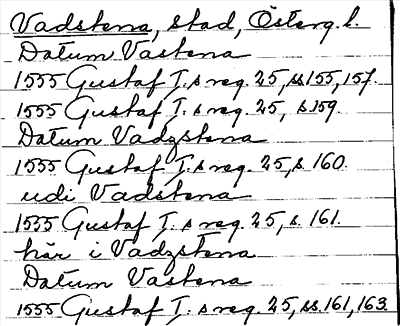 Vadstena, stad, Österg. l.
Datum Vastena
1555 Gustaf I:s reg. 25, ss 155, 157.
1555 Gustaf I:s reg. 25, s 159.
Datum Vadzstena
1555 Gustaf I:s reg. 25, s. 160.
udi Vadstena
1555 Gustaf I:s reg. 25, s. 161.
här i Vadzstena
Datum Vastena
1555 Gustaf I:s reg. 25, ss. 161, 163.